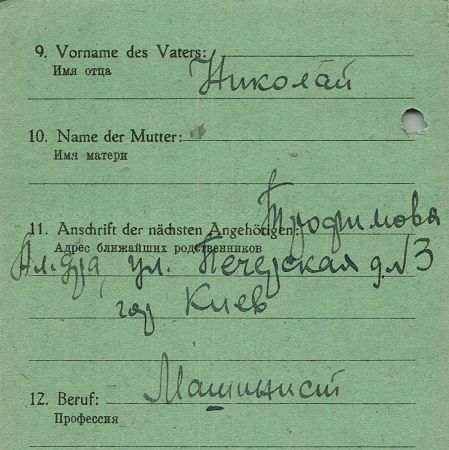 9. Vorname des Vaters:
Имя отца
Николай
10. Name der Mutter:
Имя матери
Трофимова
11. Anschrift der nächsten Angehörigen:
Адрес ближайших родственников
ул. Печерская д.№3
гор Киев
Машинист
12. Beruf:
Профессия